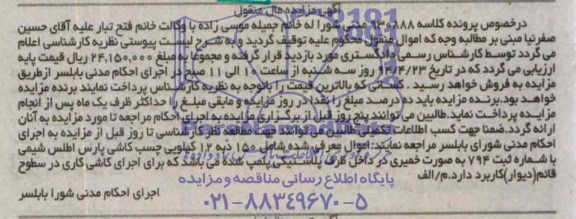 آگهی مزایده مال منقول
درخصوص پرونده کلاسه ۹۳۰۸۸۸ مدنی شورا له خانم جمیله موسی زاده با وکالت خانم فتح تبار علیه آقای حسین
صفرنیا مبنی بر مطالبه وجه که اموال منقول محکوم علیه توقیف گردید وبه شرح لیست پیوستی نظریه کارشناسی اعلام
می گردد توسط کارشناس رسمی دادگستری مورد بازدید قرار گرفته و مجموعا به مبلغ ۲۴,۱۵۰,۰۰۰ ریال قیمت پایه
ارزیابی می گردد که در تاریخ ۹۴/۴/۲۳ روز سه شنبه از ساعت ۱۰ الی ۱۱ صبح در اجرای احکام مدنی بابلسر ازطریق
مزایده به فروش خواهد رسید . کسانی که بالاترین قیمت را باتوجه به نظریه کارشناس پرداخت نمایند برنده مزایده
خواهد بود.برنده مزایده باید ده درصد مبلغ را نقدا در روز مزایده و مابقی مبلغ را حداکثر ظرف یک ماه پس از انجام
مزایده پرداخت نماید.طالبین می توانند پنج روز قبل از برگزاری مزایده به اجرای احکام مراجعه تا مورد مزایده به آنان
ارائه گردد.ضمنا جهت کسب اطلاعات تکمیلی طالبین می توانند جهت مطالعه نظریه کارشناسی تا روز قبل از مزایده به اجرای
احکام مدنی شورای بابلسر مراجعه نمایند:اموال معرفی شده شامل ۱۵۰ دبه ۱۲ کیلویی چسب کاشی پارس اطلس شیمی
با شماره ثبت ۷۹۴ به صورت خمیری در داخل ظرف پلاستیکی پلمب شده می باشد که برای اجرای کاشی کاری در سطوح
قائم(دیوار)کاربرد دارد.م/الف
اجرای احکام مدنی شورا بابلسر
پایگاه اطلاع رسانی مناقصه ومزایده
۰۲۱-۸۸۳۴۹۶۷۰-۵